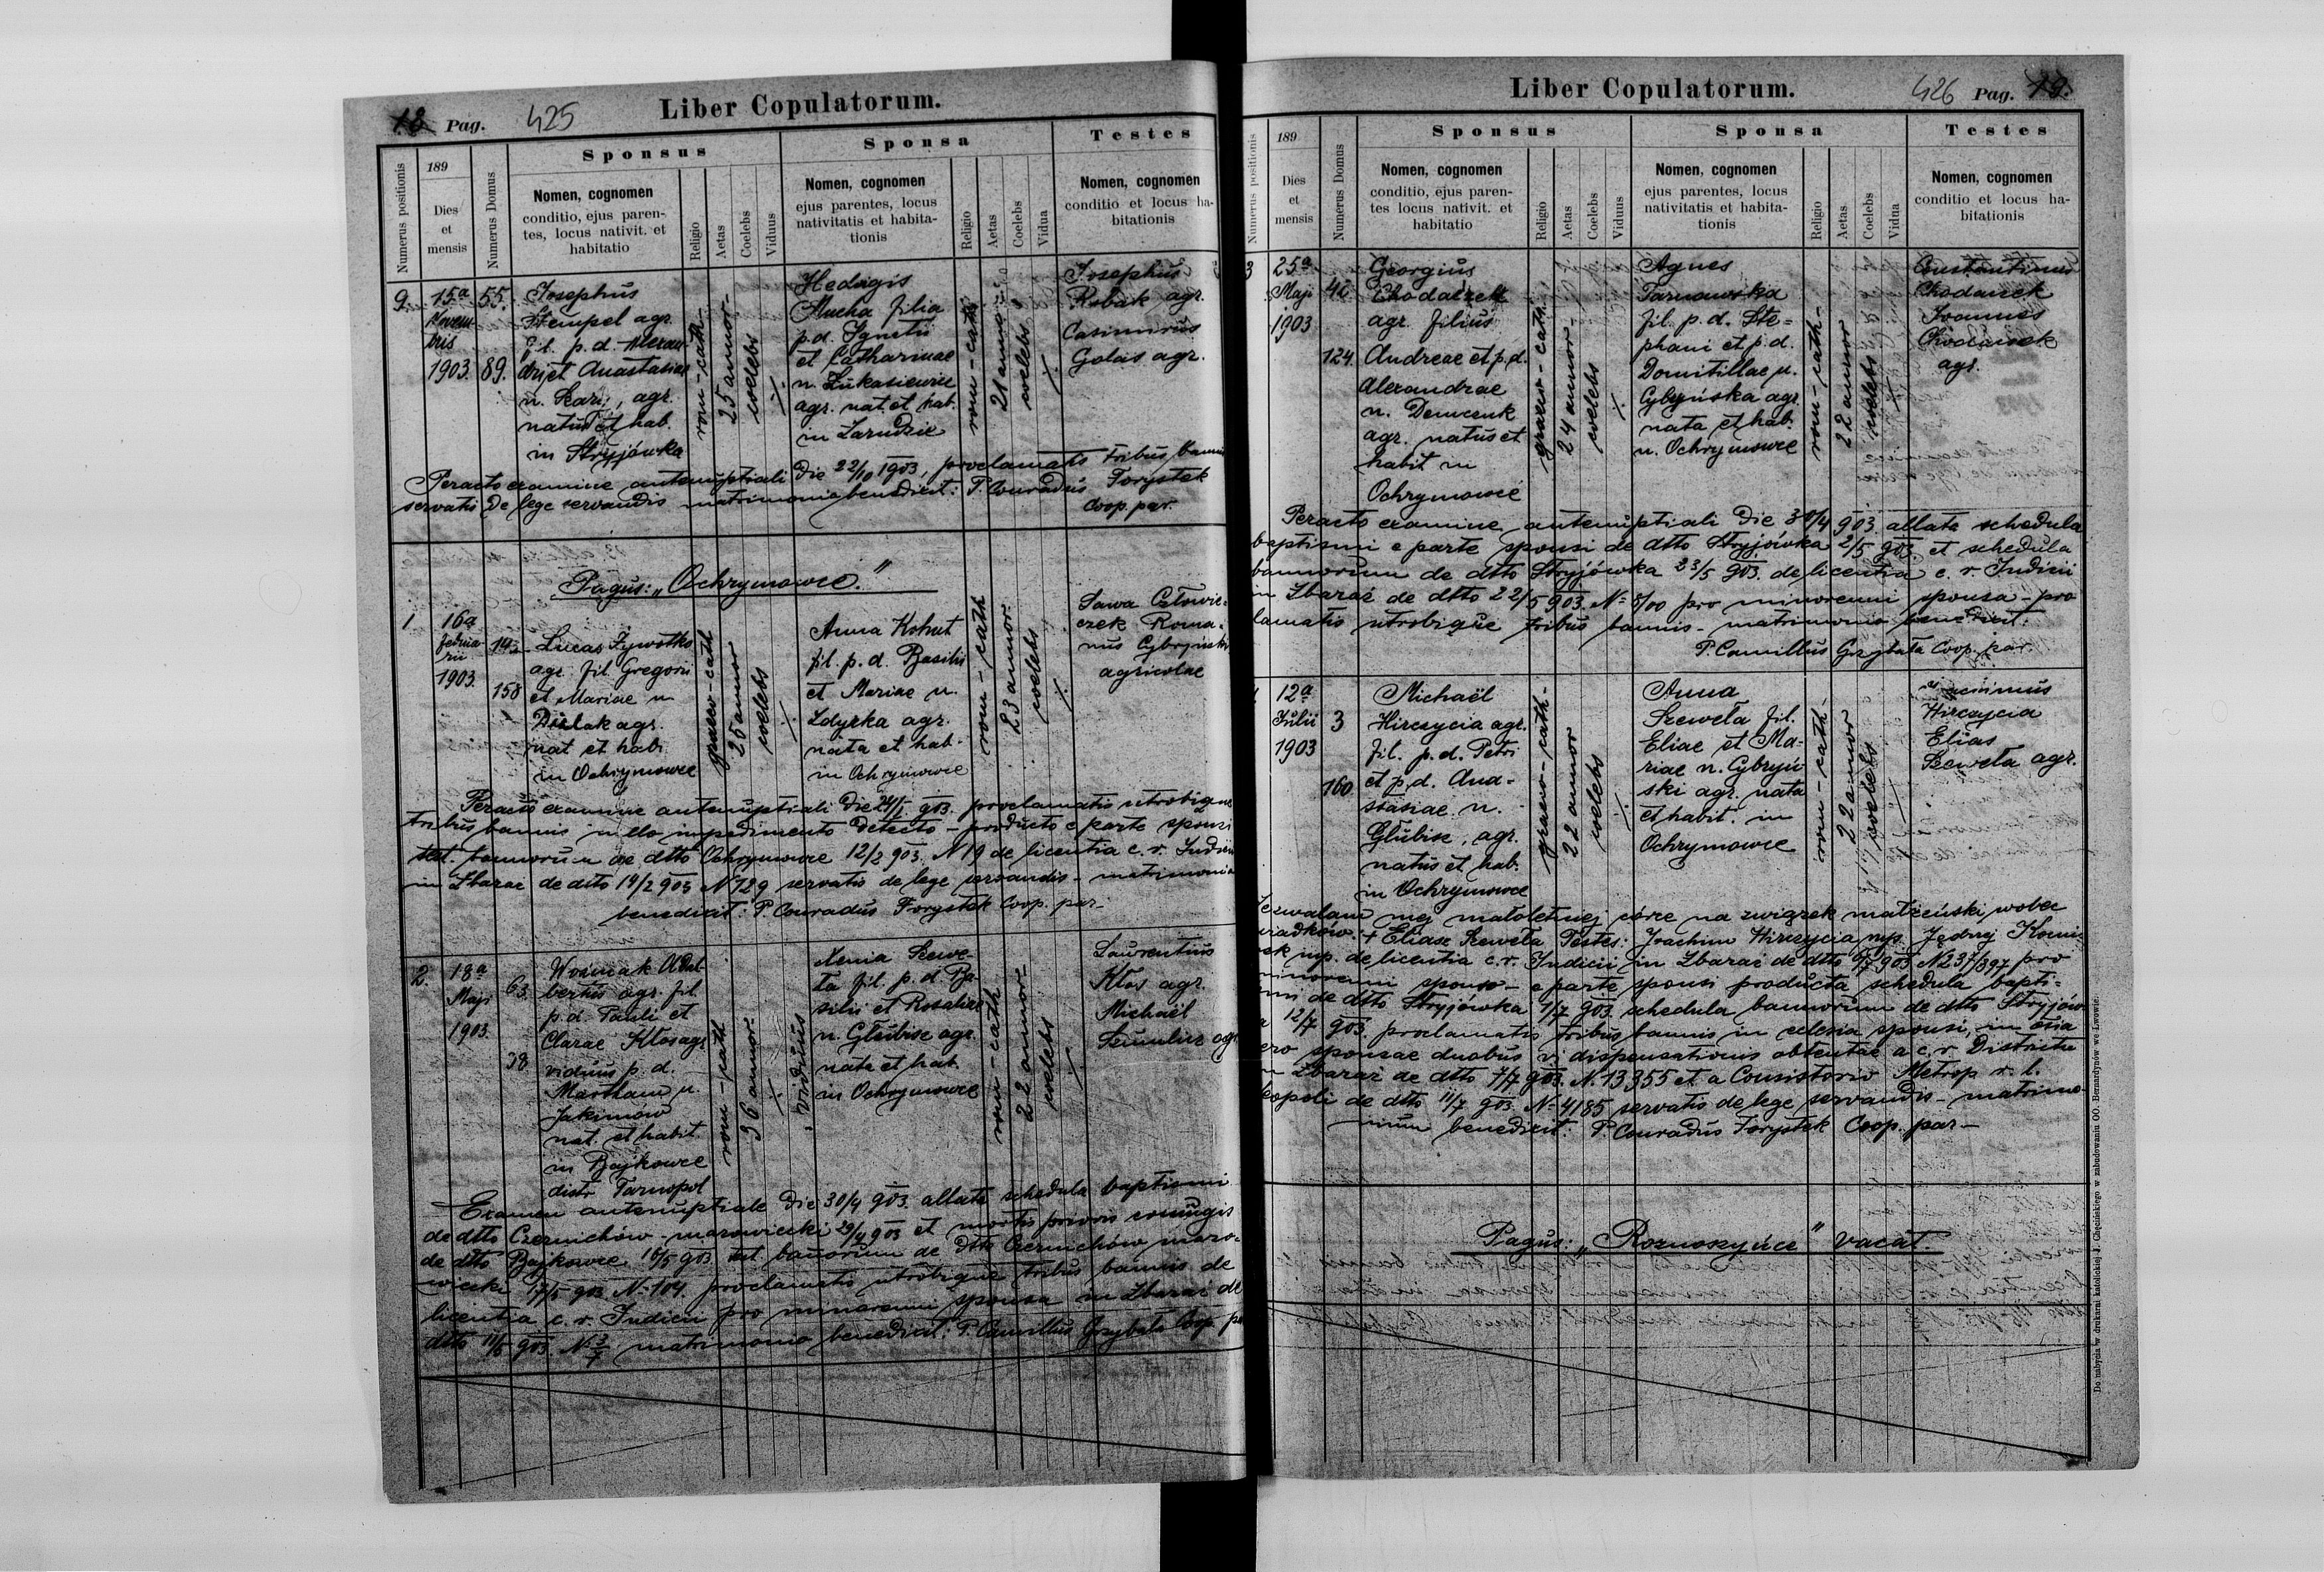 18 Pag. 425
Liber Copulatorum.
Numerus positionis
189
Dies
et
mensis
Numerus Domus
Sponsus
Nomen, cognomen
conditio, ejus paren-
tes, locus nativit. et
habitatio
Religio
Aetas
Coelebs
Viduus
Sponsa
Nomen, cognomen
ejus parentes, locus
nativitatis et habita-
tionis
Religio
Aetas
Coelebs
Vidua
Testes
Nomen, cognomen
conditio et locus ha-
bitationis
9.
15a
Novem
bris
1903.
55.
89.
Josephus
Stempel agr.
fil. p. d. Alexan
dri et Anastasiae
n. , agr.
natus et hab.
in Stryjówka
rom-cath-
25 annor-
coelebs
Hedvigis
Mucha filia
p.d. Ignatii
et Catharinae
n. Łukasiewicz
agr. nat. et hab.
in Zarudzie
rom-cath-
21 annor
coelebs
Josephus
Robak agr.
Casimirus
Golas agr.
Peracto examine antenuptiali die 22/10 1903, proclamatis tribus bannis
servatis de lege servandis matrimonio benedixit: P. Conradus Forystek
Coop. par.
Pagus: „Ochrymowce."
1
16a
Februa
rii
1903.
14
158
Lucas Żywotko
agr. fil. Gregorii
et Mariae n.
agr.
nat et hab.
in Ochrymowce
graeco-cath
25 annor
coelebs
Anna Kohut
fil. p. d. Basilii
et Mariae n.
Zdyrka agr.
nata et hab.
in Ochrymowce
rom-cath
23 annor.
coelebs
Sawa Człowie-
czek Roma-
nus Cybryński
agricolae
Peracto examine antenuptiali die 24/1 903. proclamatis utrobique
tribus bannis nullo impedimento detecto - producto e parte sponsi
test. bannorum de dtto Ochrymowce 12/2 903. N 19 de licentia c. r. Judicii
in Zbaraż de dtto 14/2 903 N 129 servatis de lege servandis - matrimonio
benedixit: P. Conradus Forystek Coop. par-
2.
18a
Maji
1903.
63.
38
Woźniak Adal-
bertus agr. fil.
p.d. Pauli et
Clarae Kłos agr.
viduus p. d.
Martham n.
Jakimów
nat. et habit.
in Bajkowce
distr Tarnopol
rom-cath
36 annor.
viduus
Xenia Szewe-
ta fil. p. d. Ba
silii et Rosaliae
n. Głubisz agr.
nata et hab.
in Ochrymowce
rom-cath
22 annor-
coelebs
Laurentius
Kłos agr.
Michaël
agr
Examen antenuptiale die 30/4 903. allata schedula baptismi
de dtto Czernichów-mazowiecki 29/4 903 et mortis prioris conjugis
de dtto Bajkowce 16/5 903 test. banorum de dtto Czernichów mazo-
wiecki 17/5 903 N. 104. proclamatis utrobique tribus bannis de
licentia c. r. Judicii pro minorenni sponsa in Zbaraż de
dtto 11/5 903. N. matrimonio benedixit: P. Camillus Grzybała Coop. par
Liber Copulatorum.
426 Pag. 19.
Numerus positionis
189
Dies
et
mensis
Numerus Domus
Sponsus
Nomen, cognomen
conditio, ejus paren-
tes locus nativit. et
habitatio
Religio
Aetas
Coelebs
Viduus
Sponsa
Nomen, cognomen
ejus parentes, locus
nativitatis et habita-
tionis
Religio
Aetas
Coelebs
Vidua
Testes
Nomen, cognomen
conditio et locus ha-
bitationis
3
25a
Maji
1903
124.
Georgius
Chodaczek
agr. filius
Andreae et p.d.
Alexandrae
n. Demczuk
agr. natus et
habit in
Ochrymowce
graeco-cath.
24 annor-
coelebs
Agnes
Tarnawska
fil. p. d. Ste-
phani et p.d.
Domitillae n.
Cybryńska agr.
nata et hab.
n. Ochrymowce
rom-cath-
22 annor
coelebs
Constantinus
Chodaczek
Joannes
Chodaczek
agr.
Peracto examine antenuptiali die 30/4 903 allata schedula
baptismi e parte sponsi de dtto Stryjówka 2/5 903. et schedula
bannorum de dtto Stryjówka 23/5 903. de licentia c. r. Judicii
in Zbaraż de dtto 22/5 903. N. 8/00 pro minorenni sponsa - pro
lamatis utrobique tribus bannis - matrimonio benedixit:
P. Camillus Grzybała Coop. par.
12a
Julii
1903
3
160
Michaël
Hirczycia agr.
fil. p. d. Petri
et p. d. Ana-
stasiae n.
Głubisz, agr.
natus et hab.
in Ochrymowce
graeco-cath-
22 annor
coelebs
Anna
Szeweta fil.
Eliae et Ma-
riae n. Cybryń-
ski agr. nata
et habit. in
Ochrymowce
rom-cath-
22 annor
coelebs
Hirczycia
Elias
Szeweta agr.
mej małoletniej córce na związek małżeński wobec
+ Eliasz Szeweta Testes: Joachim Hirczycia mp. Jędrzej
mp. de licentia c. r. Judicii in Zbaraż de dtto 6/7 903 N 237/397 pro
minorenni sponso - e parte sponsi producta schedula bapti-
smi de dtto Stryjówka 1/7 903. schedula bannorum de dtto Stryjów
12/7 903. proclamatis tribus bannis in eclesia sponsi,
sponsae duobus vi dispensationis obtentae a c. r. Districtu
Zbaraż de dtto 7/7 903. N. 13355 et a Consistorio Metrop r. l.
Leopoli de dtto 11/7 903. N. 4185 servatis de lege servandis - matrimo
nium benedixit: P. Conradus Forystek Coop. par-
Pagus: „Roznoszyńce" vacat.
Do nabycia w drukarni katolickiej J. Chęcińskiego w zabudowaniu OO. Bernardynów we Lwowie.